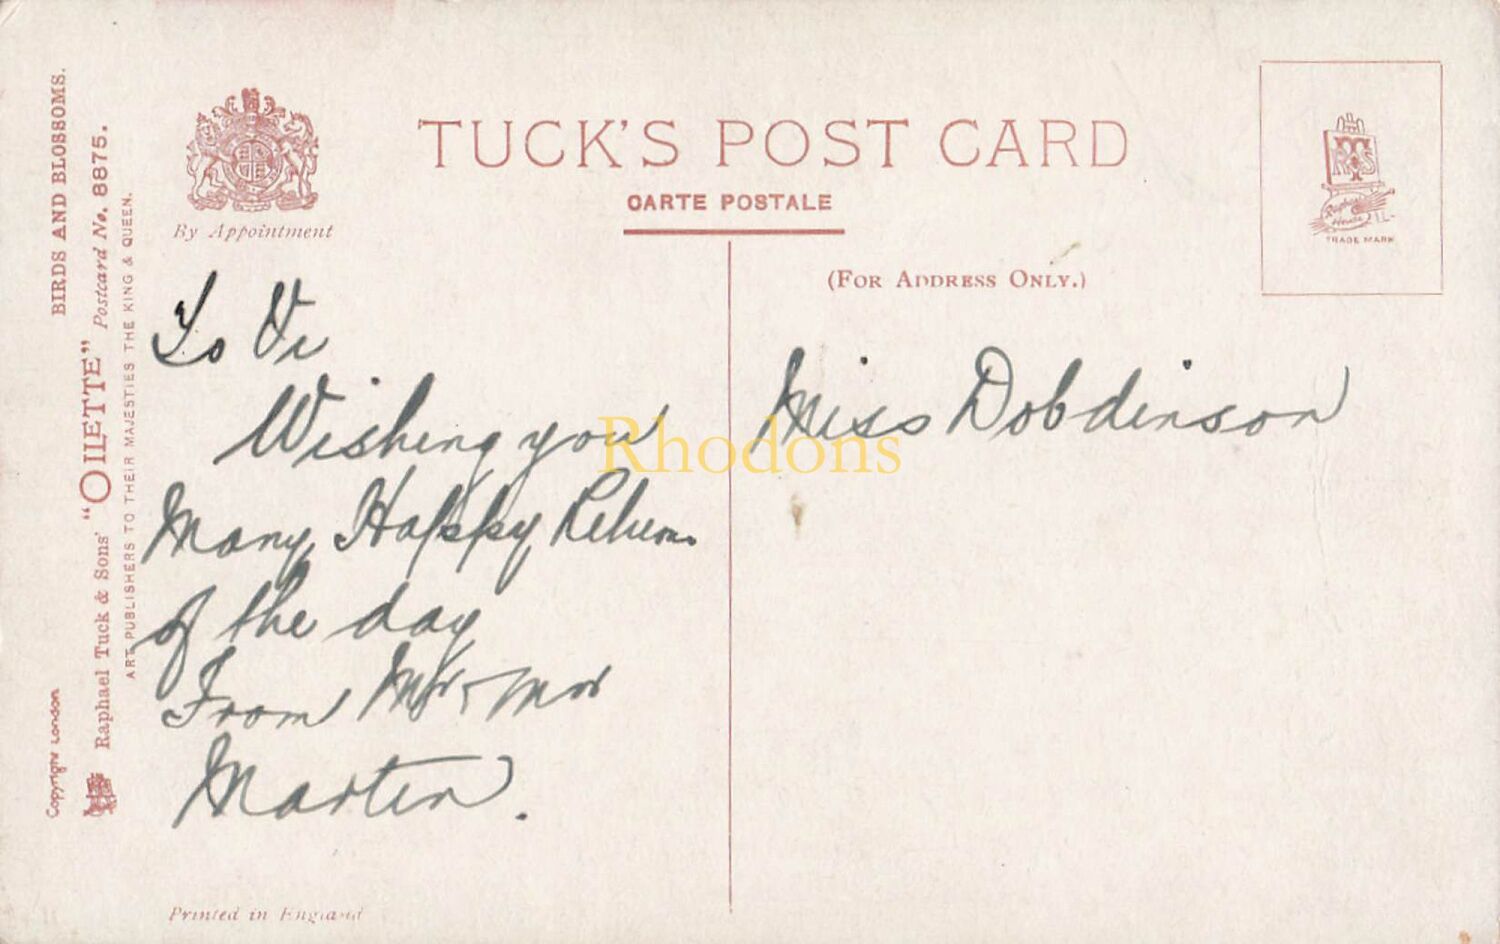 BIRDS AND BLOSSOMS.
Copyright London
Raphael Tuck & Sons' "OILETTE" Postcard No. 8875.
ART PUBLISHERS TO THEIR MAJESTIES THE KING & QUEEN.
By Appointment
TUCK'S POST CARD
CARTE POSTALE
(FOR ADDRESS ONLY.)
RTS
Raphael House
TRADE MARK
To Vi
Wishing you
Many Happy Returns
of the day
From Mr & Mrs
Martin.
Miss Dobdinson
Rhodons
Printed in England